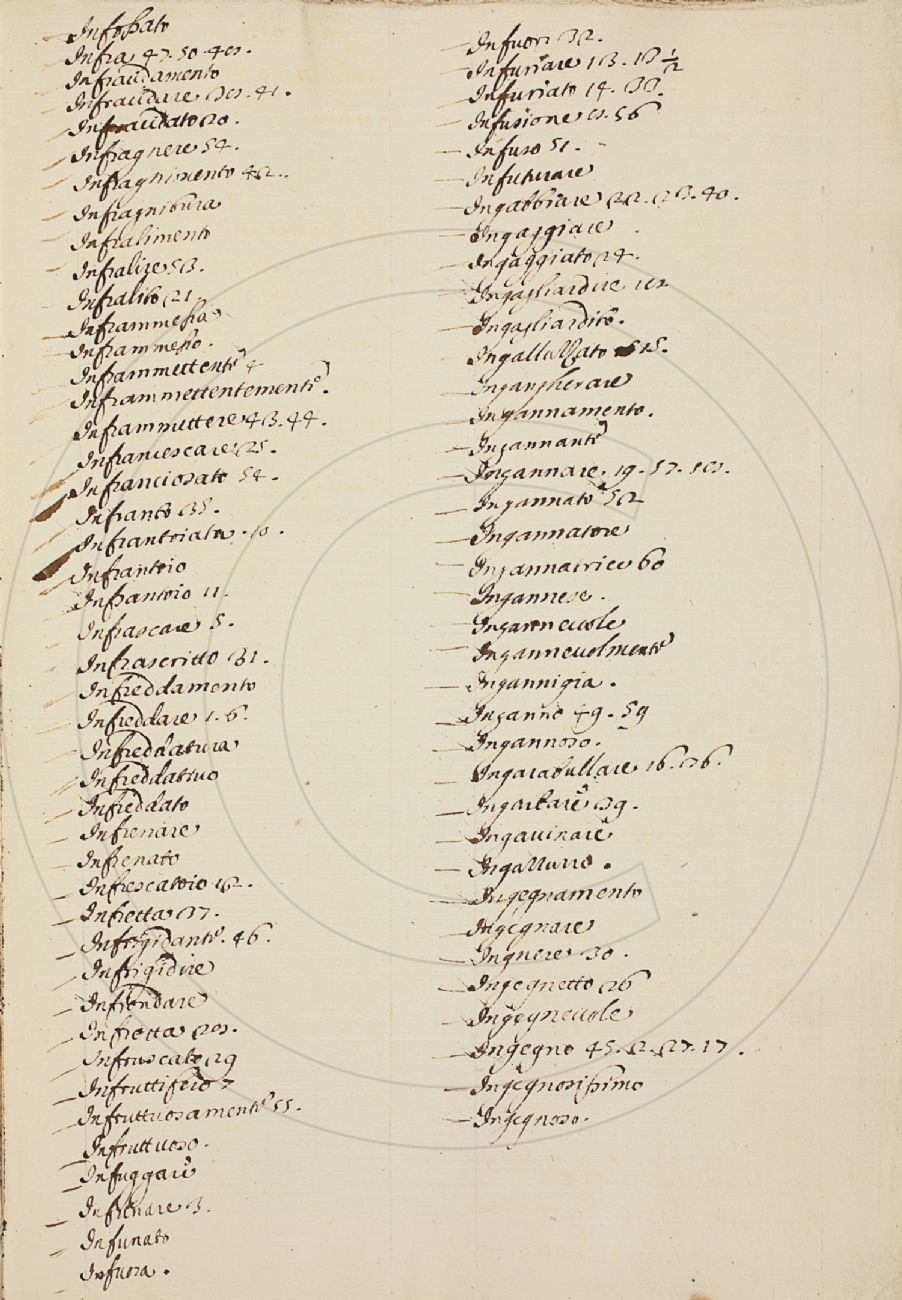 Infossato
Infra 47. 50.
Infraudamento
Infraudare 41.
Infraudato 20.
Infragnere 54.
Infragnimento 42.
Infragnitura
Infralimento
Infralire 53.
Infralito 21
Inframmessa
Inframmesso.
Inframmettente 4
Inframmettentemente.
Inframmettere 43. 44.
Infrancescare 25.
Infranciosato 54.
Infranto 35.
Infrantoiata . 10 .
Infrantoio
Infrantoio 11.
Infrascare 5.
Infrascritto 31.
Infreddamento
Infreddare 1. 6.
Infreddatura
Infreddativo
Infreddato
Infrenare
Infrenato
Infrescatoio 12.
Infretta 37.
Infrigidante. 46.
Infrigidire
Infrondare
Infrotta
Infruscato 29
Infruttifero 7
Infruttuosamente 55.
Infruttuoso.
Infuggare
Infunare 3.
Infunato
Infuora.
Infuori 32.
Infuriare 13. 18 1/2
Infuriato 14. 33.
Infusione 56
Infuso 51.
Infuturare
Ingabbiare 22. 23. 40.
Ingaggiare
Ingaggiato 24.
Ingagliardire
Ingagliardito.
Ingalluzzato 15.
Ingangherare
Ingannamento.
Ingannante
Ingannare. 19. 57.
Ingannato 52
Ingannatore
Ingannatrice 60
Ingannese.
Ingannevole
Ingannevolmente
Ingannigia.
Inganno 49. 59
Ingannoso.
Ingarabullare 16. 36.
Ingarbare 39.
Ingavinare
Ingegnamento
Ingegnare
Ingnere 30.
Ingegnetto 26
Ingegnevole
Ingegno 45. 2. 27. 17.
Ingegnosissimo
Ingegnoso.